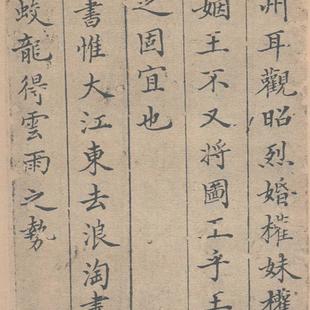 州耳觀昭烈婚㩲妹㩲
姻王不又将圖工乎王
之固宜也
書惟大江東去浪淘盡
蛟龍得雲雨之勢